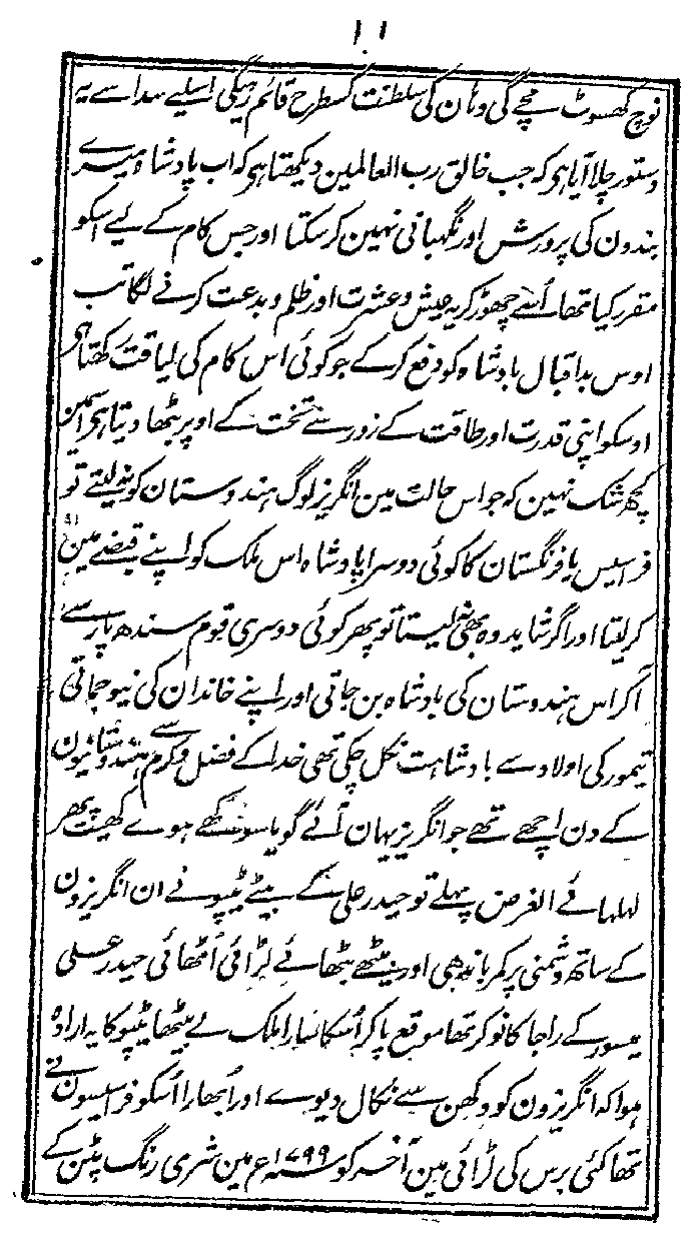 ۱۱
نوچ کھسوٹ مچے گی وہان کی سلطنت کسطرح قائم رہیگی اسلیے سدا سے یہ
دستور چلا آیا ہی کہ جب خالق رب العالمین دیکھتا ہی کہ اب پادشاہ میرے
بندون کی پرورش اور نگہبانی نہین کر سکتا اور جس کام کے لیے اسکو
مقرر کیا تھا اُسے چھوڑ کر یہ عیش و عشرت اور ظلم و بدعت کرنے لگا تب
اوس بد اقبال بادشاہ کو دفع کر کے جو کوئی اس کام کی لیاقت رکھتا ہی
اوسکو اپنی قدرت اور طاقت کے زور سے تخت کے اوپر بٹھا دیتا ہی اسمین
کچھ شک نہین کہ جو اس حالت مین انگریز لوگ ہندوستان کو نہ لیتے تو
فراسیس یا فرنگستان کا کوئی دوسرا پادشاہ اس ملک کو اپنے قبضے مین
کر لیتا اور اگر شاید وہ بھی نہ لیتا تو پھر کوئی دوسری قوم سندھ پار سے
آکر اس ہندوستان کی بادشاہ بن جاتی اور اپنے خاندان کی نیو جماتی
تیمور کی اولاد سے بادشاہت نکل چکی تھی خدا کے فضل و کرم سے ہندوستانیون
کے دن اچھے تھے جو انگریز یہان آئے گویا سوکھے ہوے کھیت پھر
لہلہائے الغرض پہلے تو حیدر علی کے بیٹے ٹیپو نے ان انگریزون
کے ساتھ دشمنی پر کمر باندھی اور بیٹھے بٹھائے لڑائی اُٹھائی حیدر علی
میسور کے راجا کا نوکر تھا موقع پا کر اُسکا سارا ملک لے بیٹھا ٹیپو کا یہ ارادہ
ہوا کہ انگریزون کو دکھن سے نکال دیوے اور اُبھارا اُسکو فراسیسون نے
تھا کئی برس کی لڑائی مین آخر کو سنہ ۱۷۹۹ ع مین شری رنگ پٹن کے